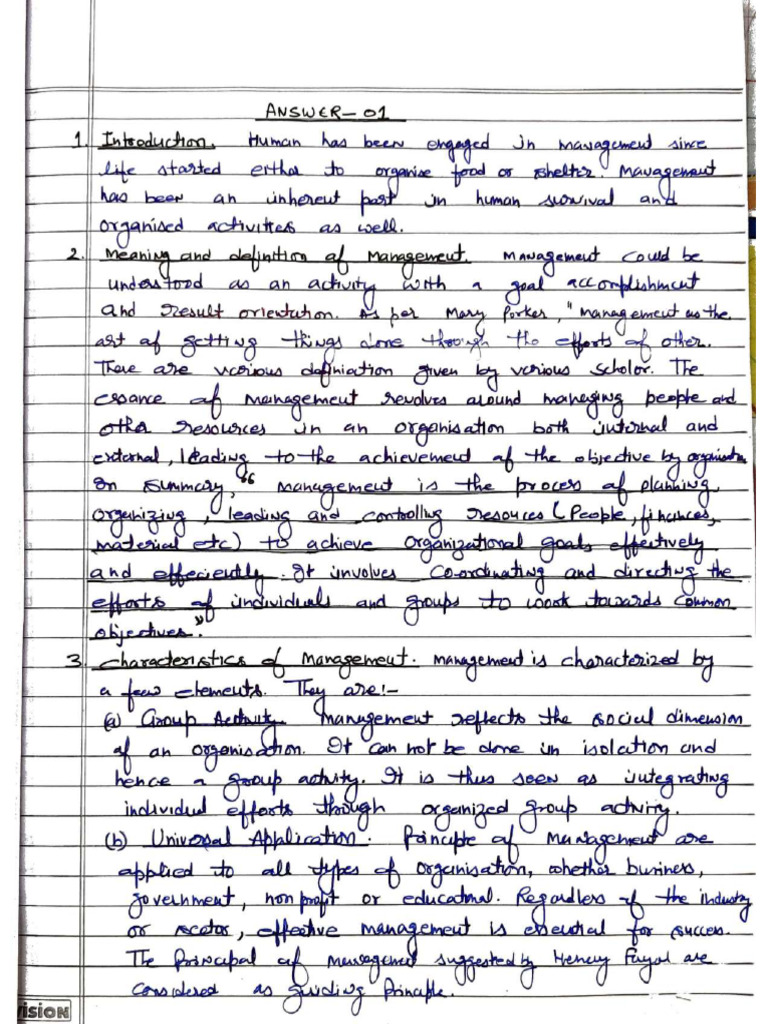 ANSWER-01
1. Introduction. Human has been engaged in management since
life started either to organise food or shelter. Management
has been an inherent part in human survival and
organised activities as well.
2. Meaning and definition of Management. Management could be
understood as an activity with a goal accomplishment
and result orientation. As per Mary Porker, "management as the
art of getting things done through the efforts of other.
There are various definiation given by various scholor. The
essance of management revolves around managing people and
other resources in an organisation both internal and
external, leading to the achievement of the objective by organisation
In summary, "management is the process of planning,
organizing, leading and controlling resouces (People, finances,
material etc) to achieve organizational goals effectively
and effeciently. It involves co-ordinating and directing the
efforts of individuals and groups to work towards common
objectives".
3. Characteristics of Management. management is characterized by
a few elements. They are:-
(a) Group Activity management reflects the social dimension
of an organisation. It can not be done in isolation and
hence a group activity. It is thus seen as integrating
individual efforts through organized group activity.
(b) Universal Application. Principle of management are
applied to all types of organisation, whether business,
government, non profit or educational. Regardless of the industry
or sector, effective management is essential for success.
The Principal of management suggested by Henry Fayol are
considered as guiding Principle.
vision